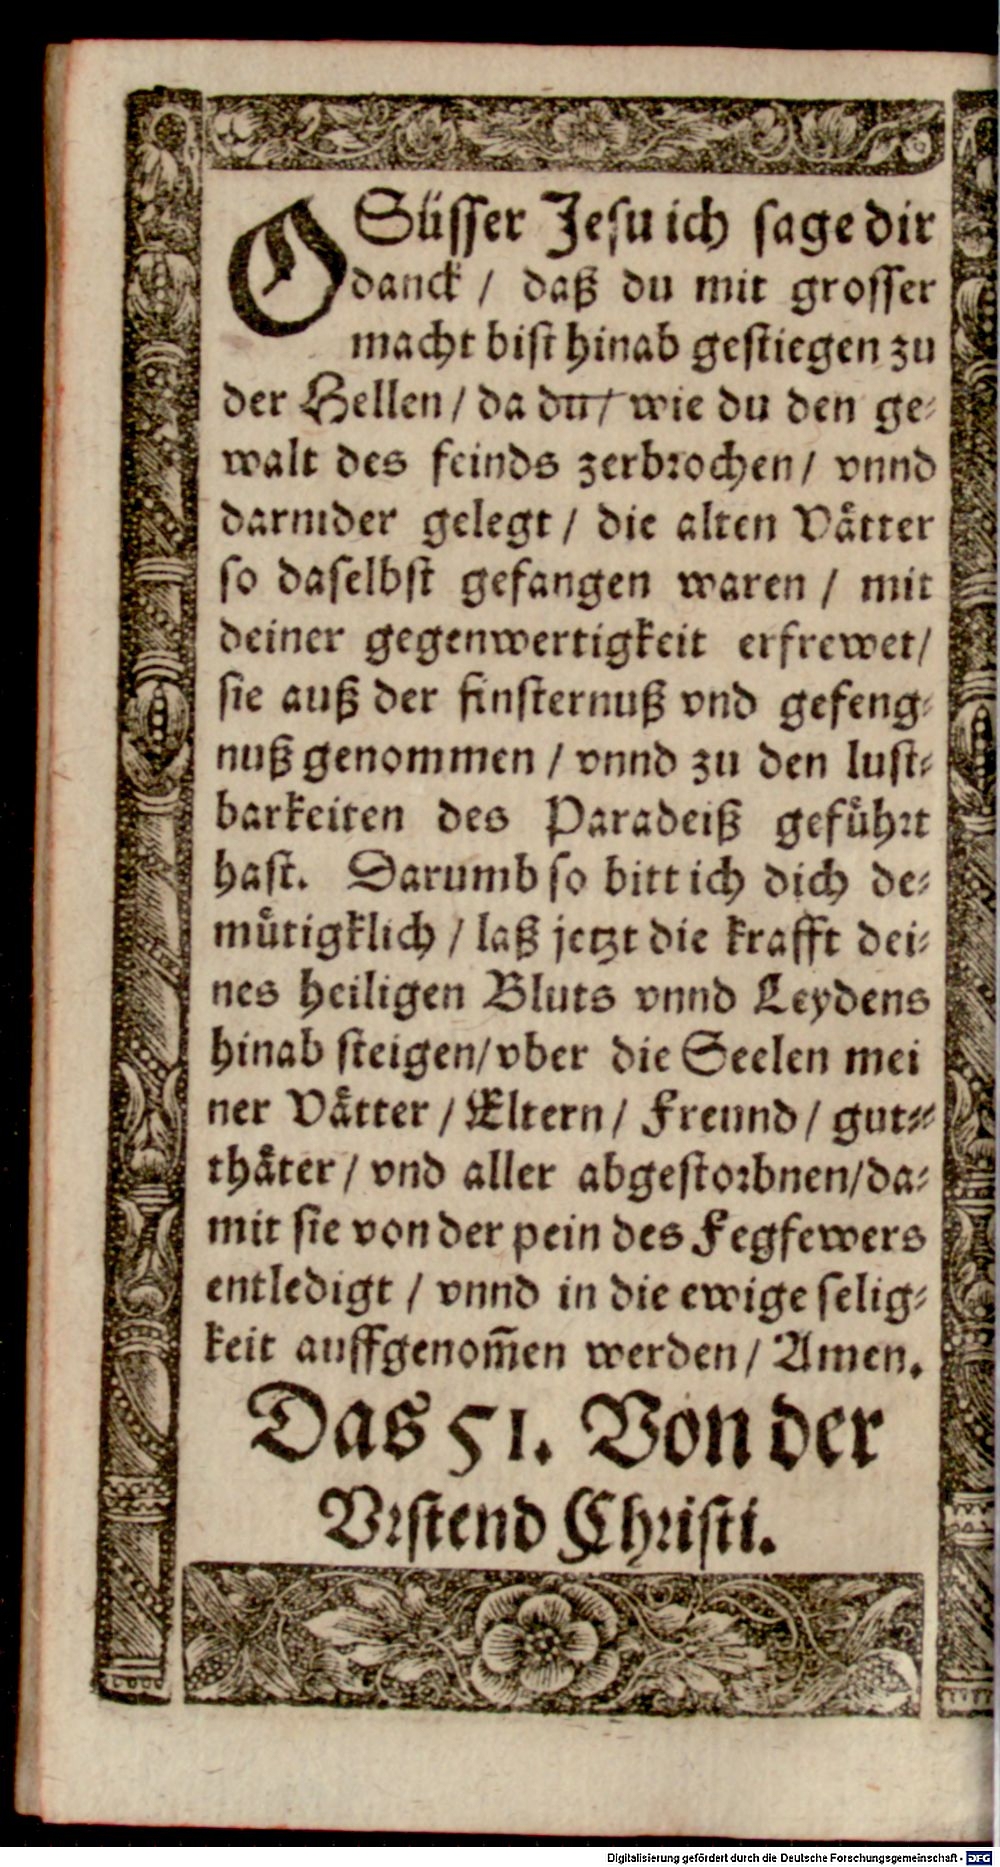 O Süsser Jesu ich sage dir
danck / daß du mit grosser
macht bist hinab gestiegen zu
der Hellen / da du / wie du den ge⸗
walt des feinds zerbrochen / vnnd
darnider gelegt / die alten Vaͤtter
so daselbst gefangen waren / mit
deiner gegenwertigkeit erfrewet /
sie auß der finsternuß vnd gefeng⸗
nuß genommen / vnnd zu den lust⸗
barkeiten des Paradeiß gefuͤhrt
hast. Darumb so bitt ich dich de⸗
muͤtigklich / laß jetzt die krafft dei⸗
nes heiligen Bluts vnnd Leydens
hinab steigen / vber die Seelen mei
ner Vaͤtter / Eltern / Freund / gut⸗
thaͤter / vnd aller abgestorbnen / da⸗
mit sie von der pein des Fegfewers
entledigt / vnnd in die ewige selig⸗
keit auffgenom̃en werden / Amen.
Das 51. Von der
Vrstend Christi.
Digitalisierung gefördert durch die Deutsche Forschungsgemeinschaft - DFG